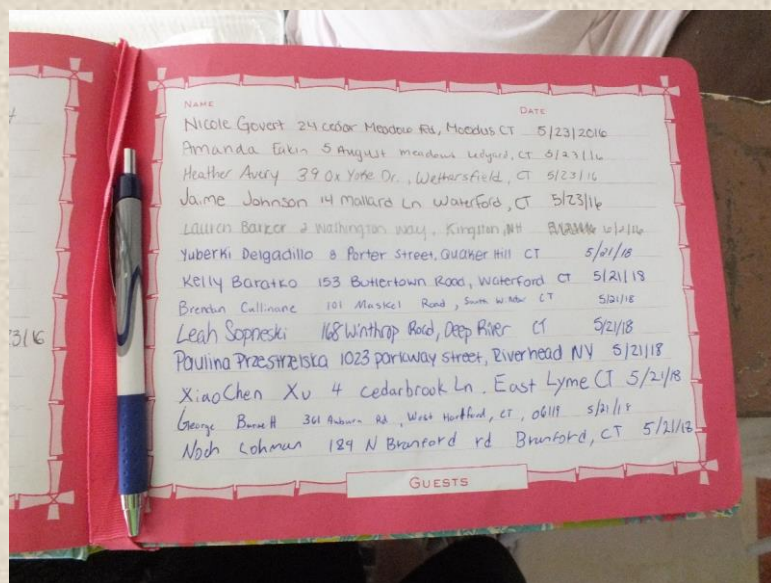 NAME DATE
Nicole Govert 24 cedar Meadow Rd, Moodus CT 5/23/2016
Amanda Eakin 5 August meadows Ledyard, CT 5/23/16
Heather Avery 39 Ox Yoke Dr., Wethersfield, CT 5/23/16
Jaime Johnson 14 Mallard Ln Waterford, CT 5/23/16
Lauren Barker 2 Washington way, Kingston, NH 6/2/16
Yuberki Delgadillo 8 Porter Street, Quaker Hill CT 5/21/18
Kelly Baratko 153 Butlertown Road, Waterford CT 5/21/18
Brendan Cullinane 101 Maskel Road, South CT 5/21/18
Leah Sopneski 168 Winthrop Road, Deep River CT 5/21/18
Paulina Przestrzelska 1023 parkway street, Riverhead NY 5/21/18
XiaoChen Xu 4 cedarbrook Ln. East Lyme CT 5/21/18
George 361 Auburn Rd, West Hartford, CT, 06119 5/21/18
Noah Lohman 189 N Branford rd Branford, CT 5/21/18
GUESTS
3/16